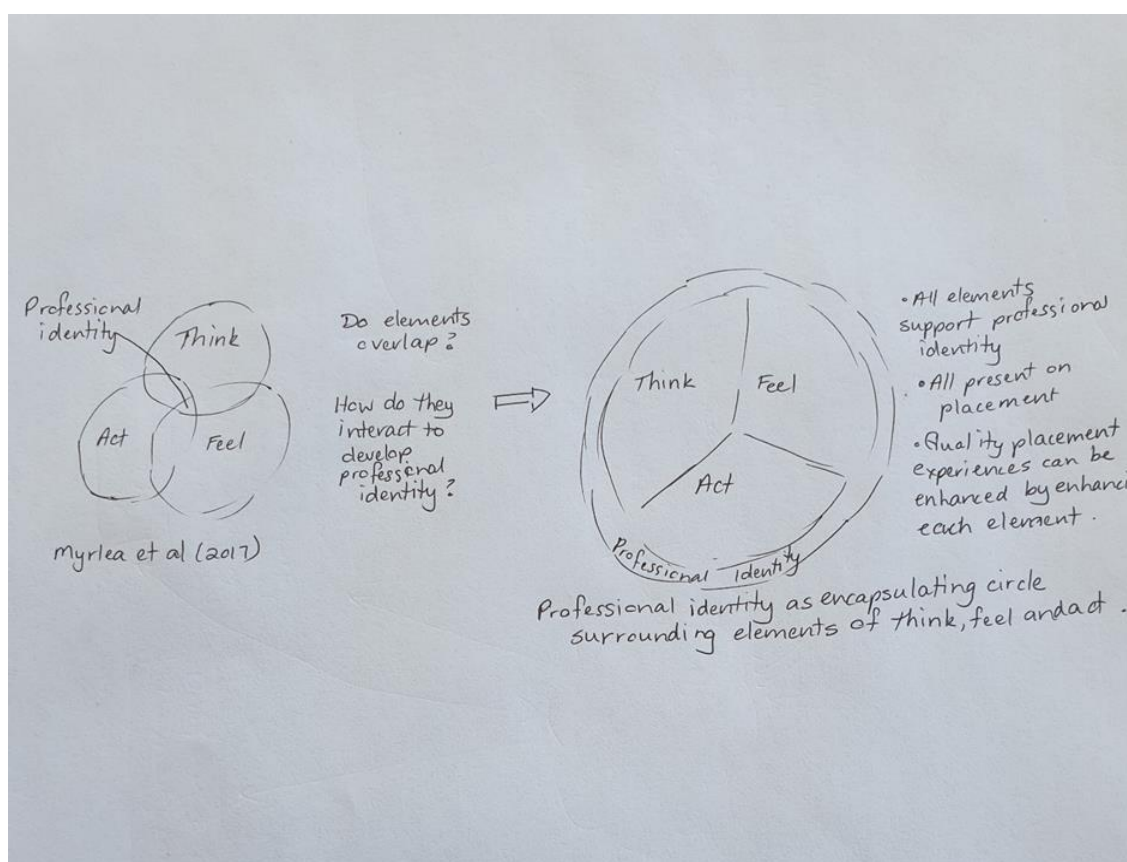 Professional
identity
Think
Act
Feel
Myrlea et al (2017)
Do elements
overlap?
How do they
interact to
develop
professional
identity?
Think
Feel
Act
Professional Identity
• All elements
support professional
identity
• All present on
placement
• Quality placement
experiences can be
enhanced by enhanci
each element.
Professional identity as encapsulating circle
surrounding elements of think, feel and act.